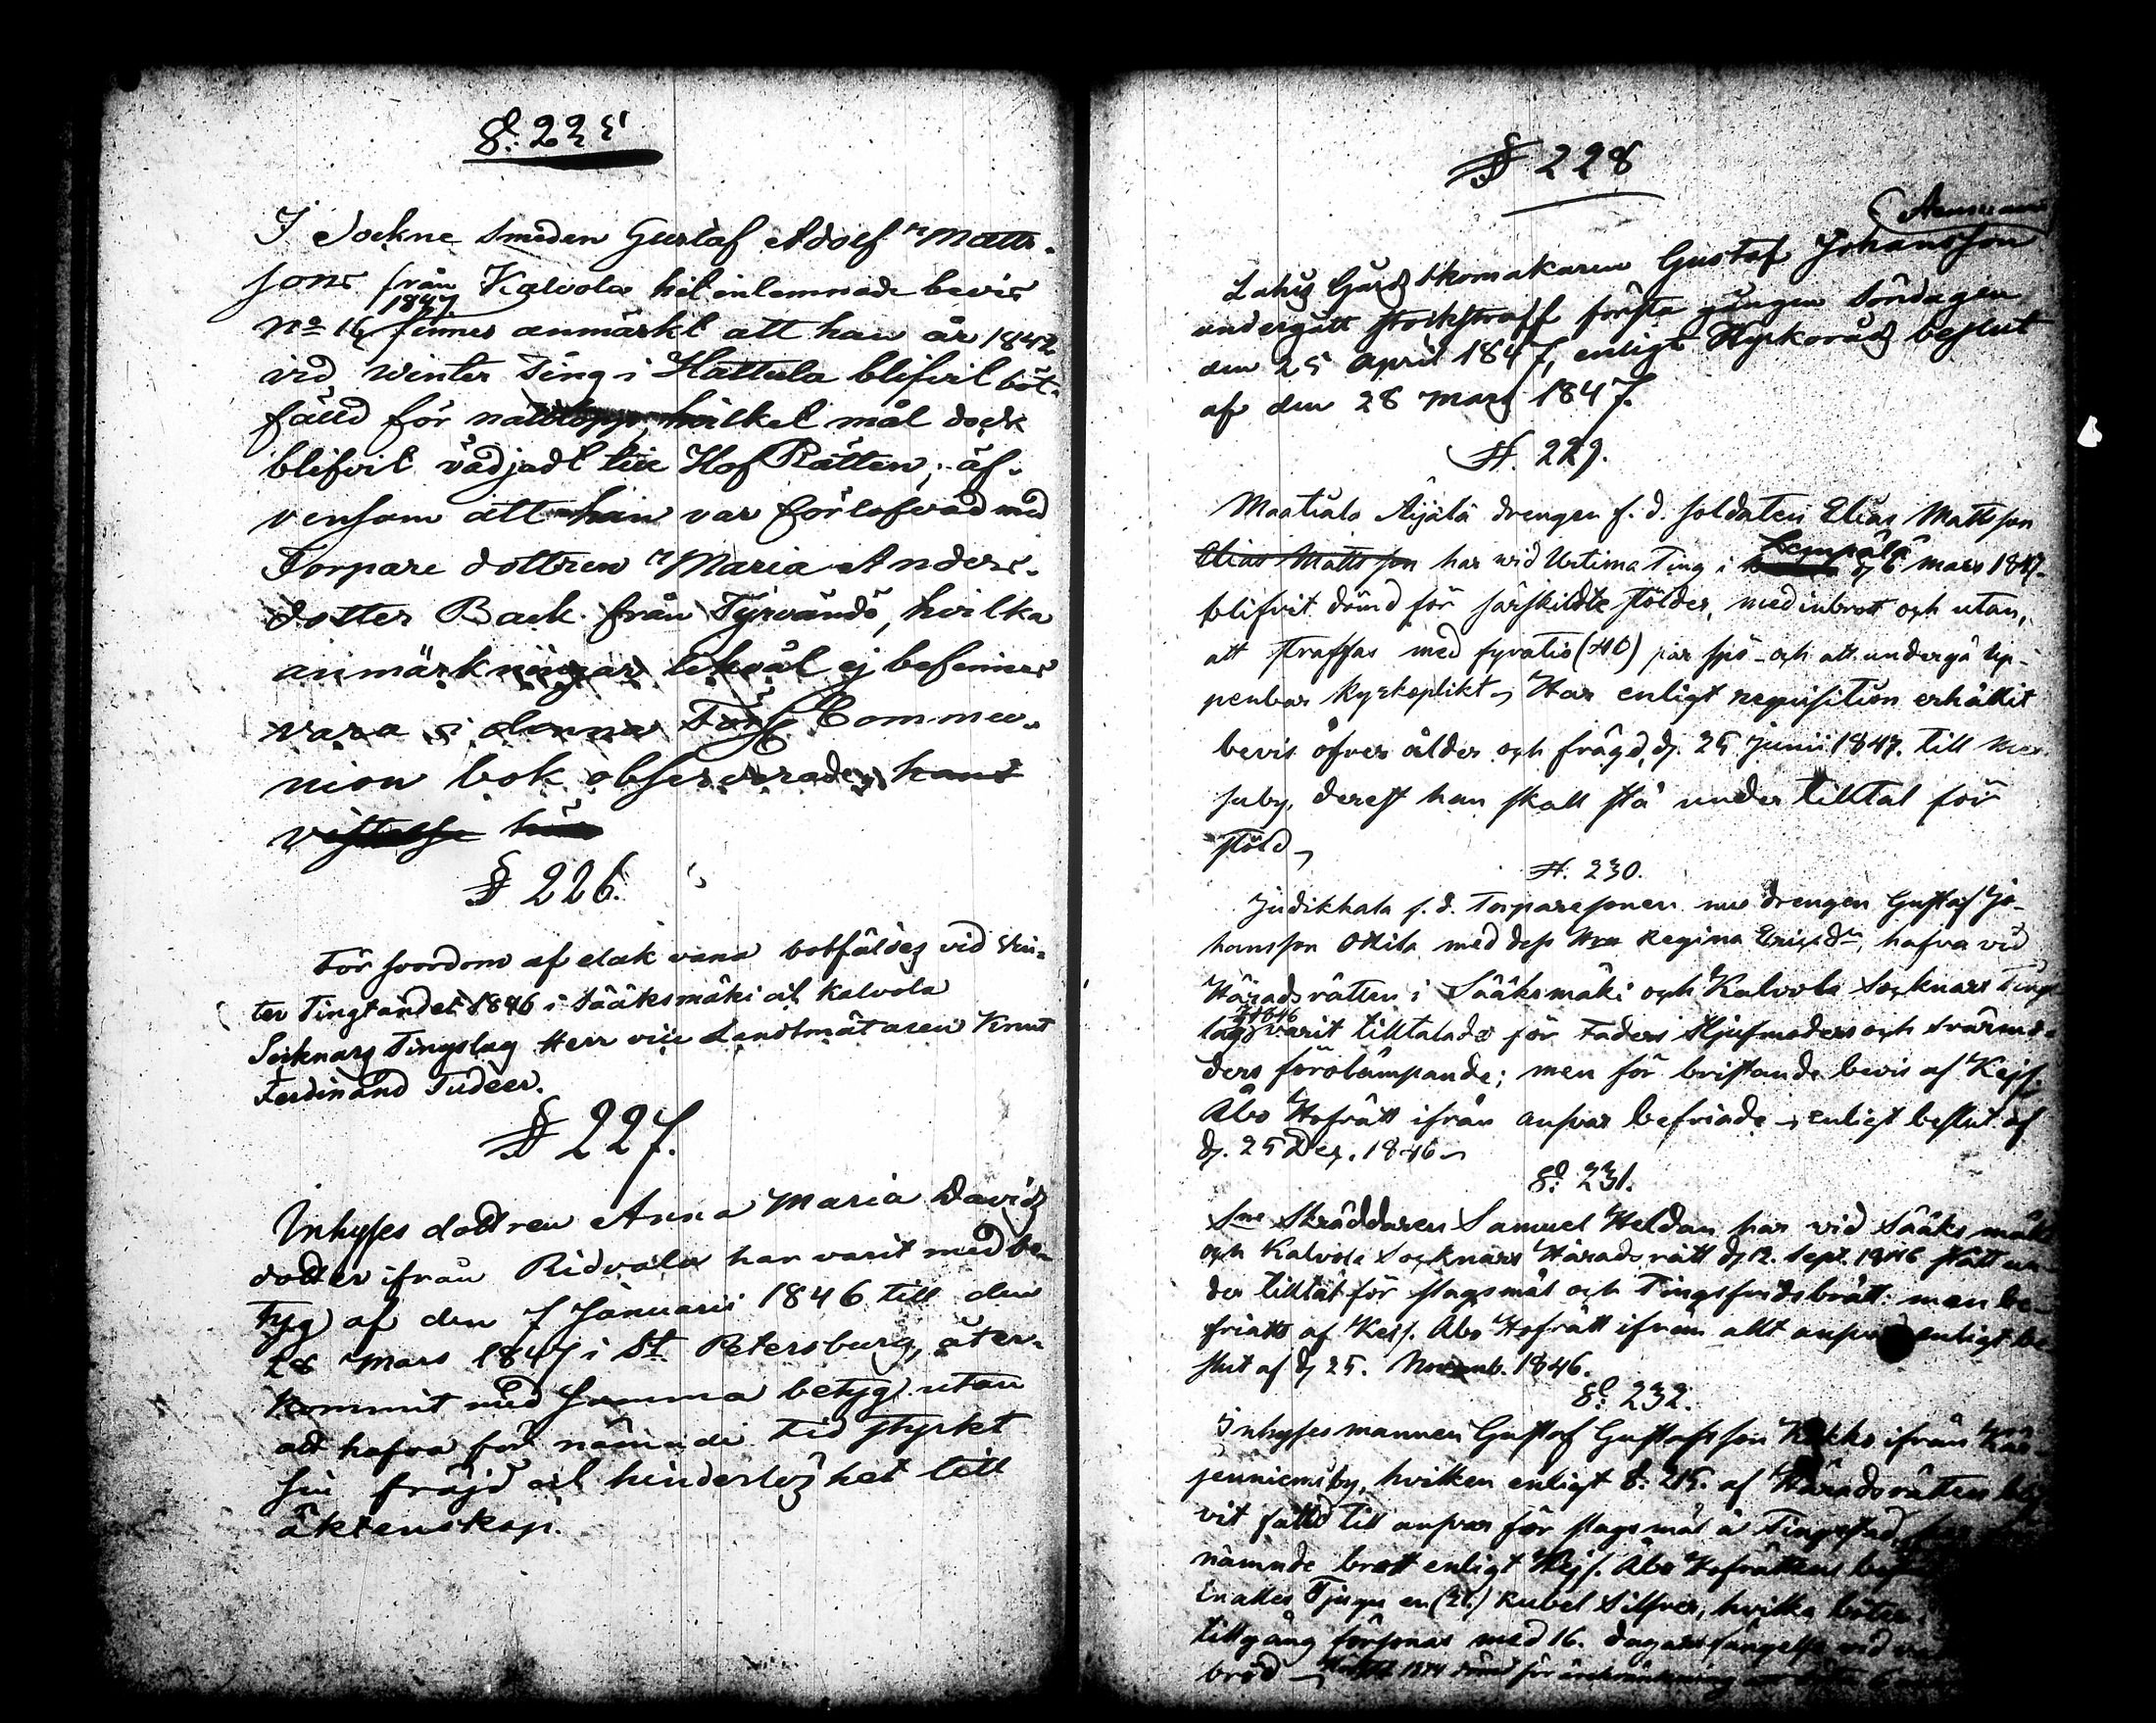 §. 225
I Sockne Smeden Gustaf Adolf Matts-
sons från Kalvola hit inlemnade bevis
No 16 1847 finnes anmärkt att han år 1842
vid Winter Ting i Hattula blifvit böt-
fälld för hvilket mål dock
blifvit vädjadt till Hof Rätten, äf-
vensom att han var förlofvad med
Torpare dottren Maria Anders-
dotter Back från Tyrvändö, hvilka
anmärkningar likväl ej befinnes
vara i denna Förs. Commu-
nion bok observerade, hans
vistelse här
§ 226.
För svordom af elak vana botfäldes vid Vin-
ter Tingtandet 1846 i Sääksmäki och Kalvola
Socknars Tingslag Herr vice Landtmätaren Knut
Ferdinand Tudeer.
§ 227.
Inhyses dottren Anna Maria Davids
dotter ifrån Ridvala har varit med be-
tyg af den 7 Januarii 1846 till den
28 Mars 1847 i St. Petersburg, åter-
kommit med samma betyg utan
att hafva för nämnde tid styrkt
sin fräjd och hinderlöshet till
äktenskap.
§ 228
Lahis Gårds Skomakaren Gustaf Johansson
undergått stockstraff första gången Söndagen
den 25 April 1847, enligt Kyrkoråds beslut
af den 28 Mars 1847.
§. 229.
Maatiala Äijälä drengen f. d. soldaten Elias Mattsson
Elias Mattsson har wid Urtima Ting i Lempälä d. 6 mars 1847.
blifvit dömd för särskildte stölder, med inbrott och utan,
att straffas med fyratio (40) par spö och att undergå Up-
penbar Kyrkoplikt. Har enligt requisition erhållit
bevis öfver ålder och frägd, d. 25 Junii 1847. till
suby, derest han skall stå under tilltal för
stöld.
§. 230.
Judikkala f. d. Torparesonen nu drengen Gustaf Jo-
hansson Ottila med dess Hru Regina Ericsdr, hafva vid
Häradsrätten i Sääksmäki och Kalvola Socknars Tings
lag 1846 varit tilltalade för Faders Stjufmoders och Svärmo-
ders förolämpande; men för bristande bevis af Kejs.
Åbo Hofrätt ifrån ansvar befriade, enligt beslut af
d. 25 Dec. 1846.
§. 231.
Sne Skräddaren Samuel Heldan har vid Sääksmäki
och Kalvola Socknars Häradsrätt d. 12. Sept. 1846 stått un-
der tilltal för slagsmål och Tingsfridsbrott: men be-
friatts af Kejs. Åbo Hofrätt ifrån allt ansvar enligt be-
slut af d. 25. Novemb. 1846.
§. 232.
Inhysesmannen Gustaf Gustafsson Kokko ifrån
jenniemiby, hvilken enligt §. 215. af Häradsrätten
vit fälld till ansvar för slagsmål å Tingstad,
nämnde brott enligt Kejs. Åbo Hofrättens
en (21.) Rubel Silfver, hvilka böter
tillgång försonas med 16. dagars fängelse vid
bröd 1874 dömd för ärekränkning